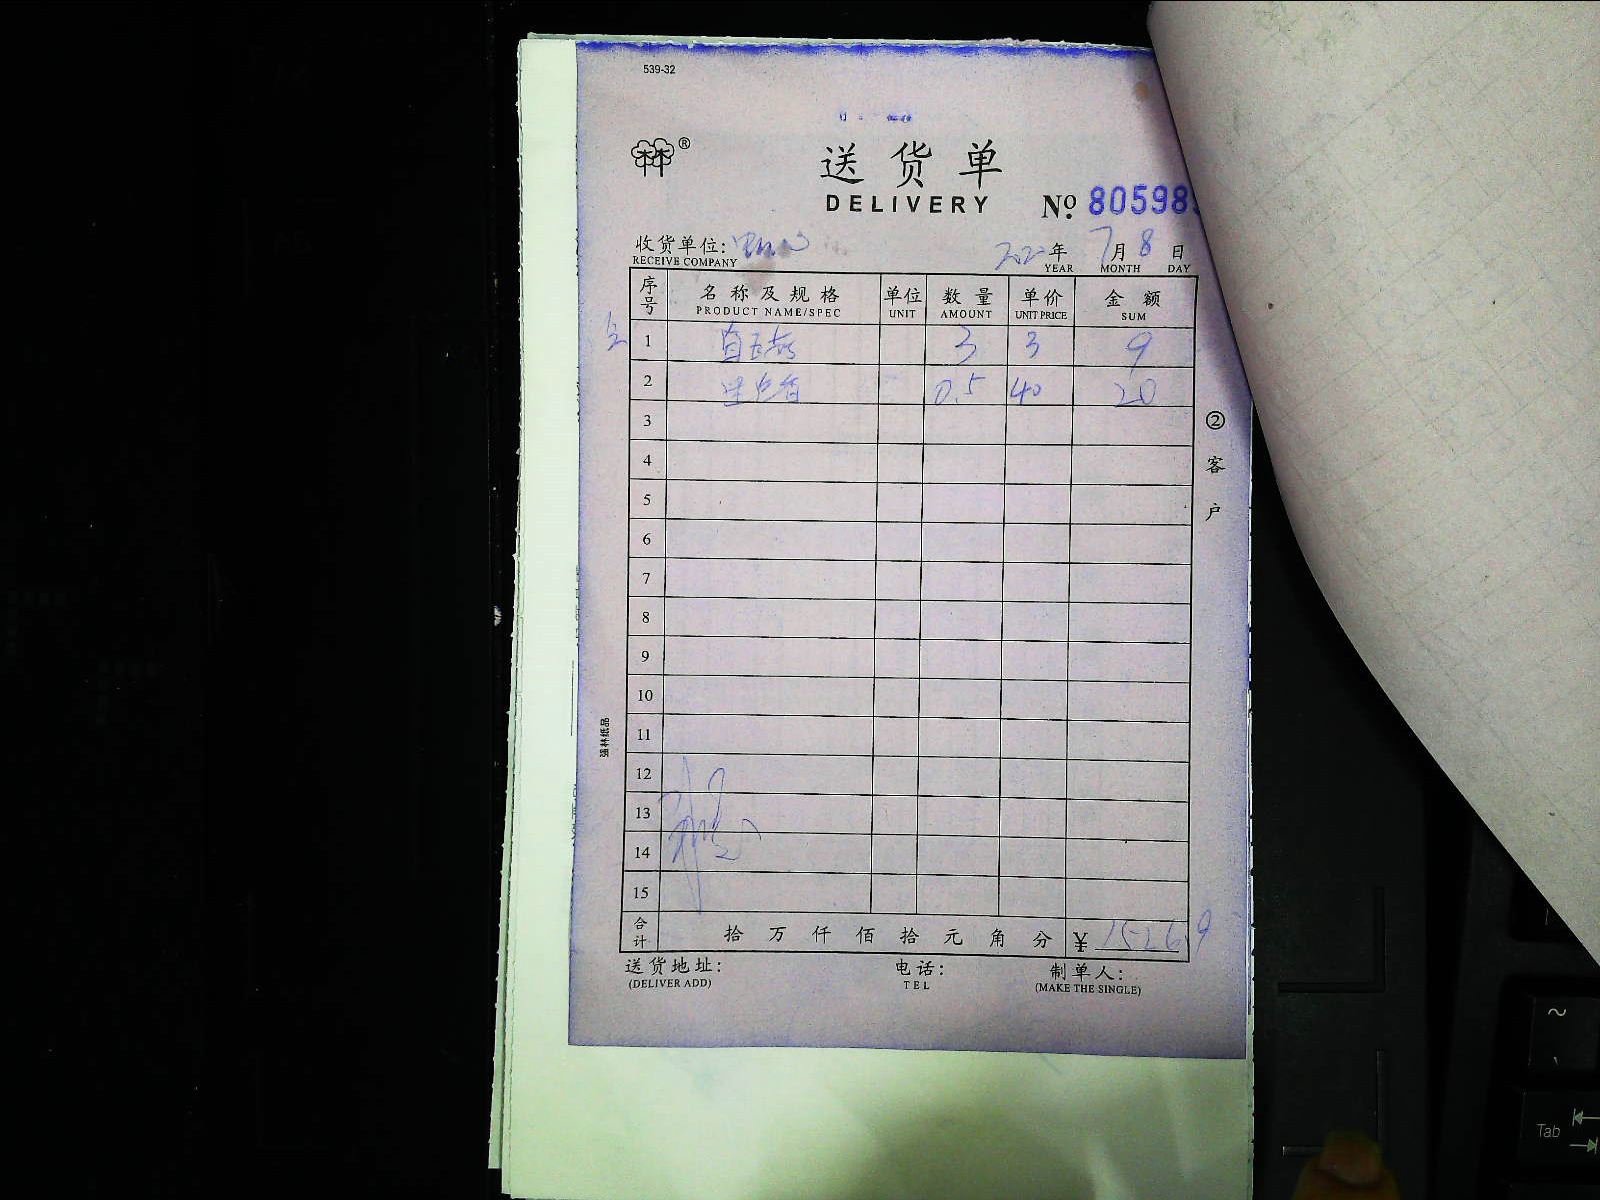 539-32
®
送货单
DELIVERY Nº 80598
收货单位: 年 7月 8日
RECEIVE COMPANY YEAR MONTH DAY
序号 名称及规格 单位 数量 单价 金额
PRODUCT NAME/SPEC UNIT AMOUNT UNIT PRICE SUM
1 3 3 9
2 0.5 40 20
3
4
5
6
7
8
9
10
11
12
13
14
15
合计 拾 万 仟 佰 拾 元 角 分 ¥ 1526.9
送货地址: 电话: 制单人:
(DELIVER ADD) TEL (MAKE THE SINGLE)
②客户
强林纸品
~
Tab